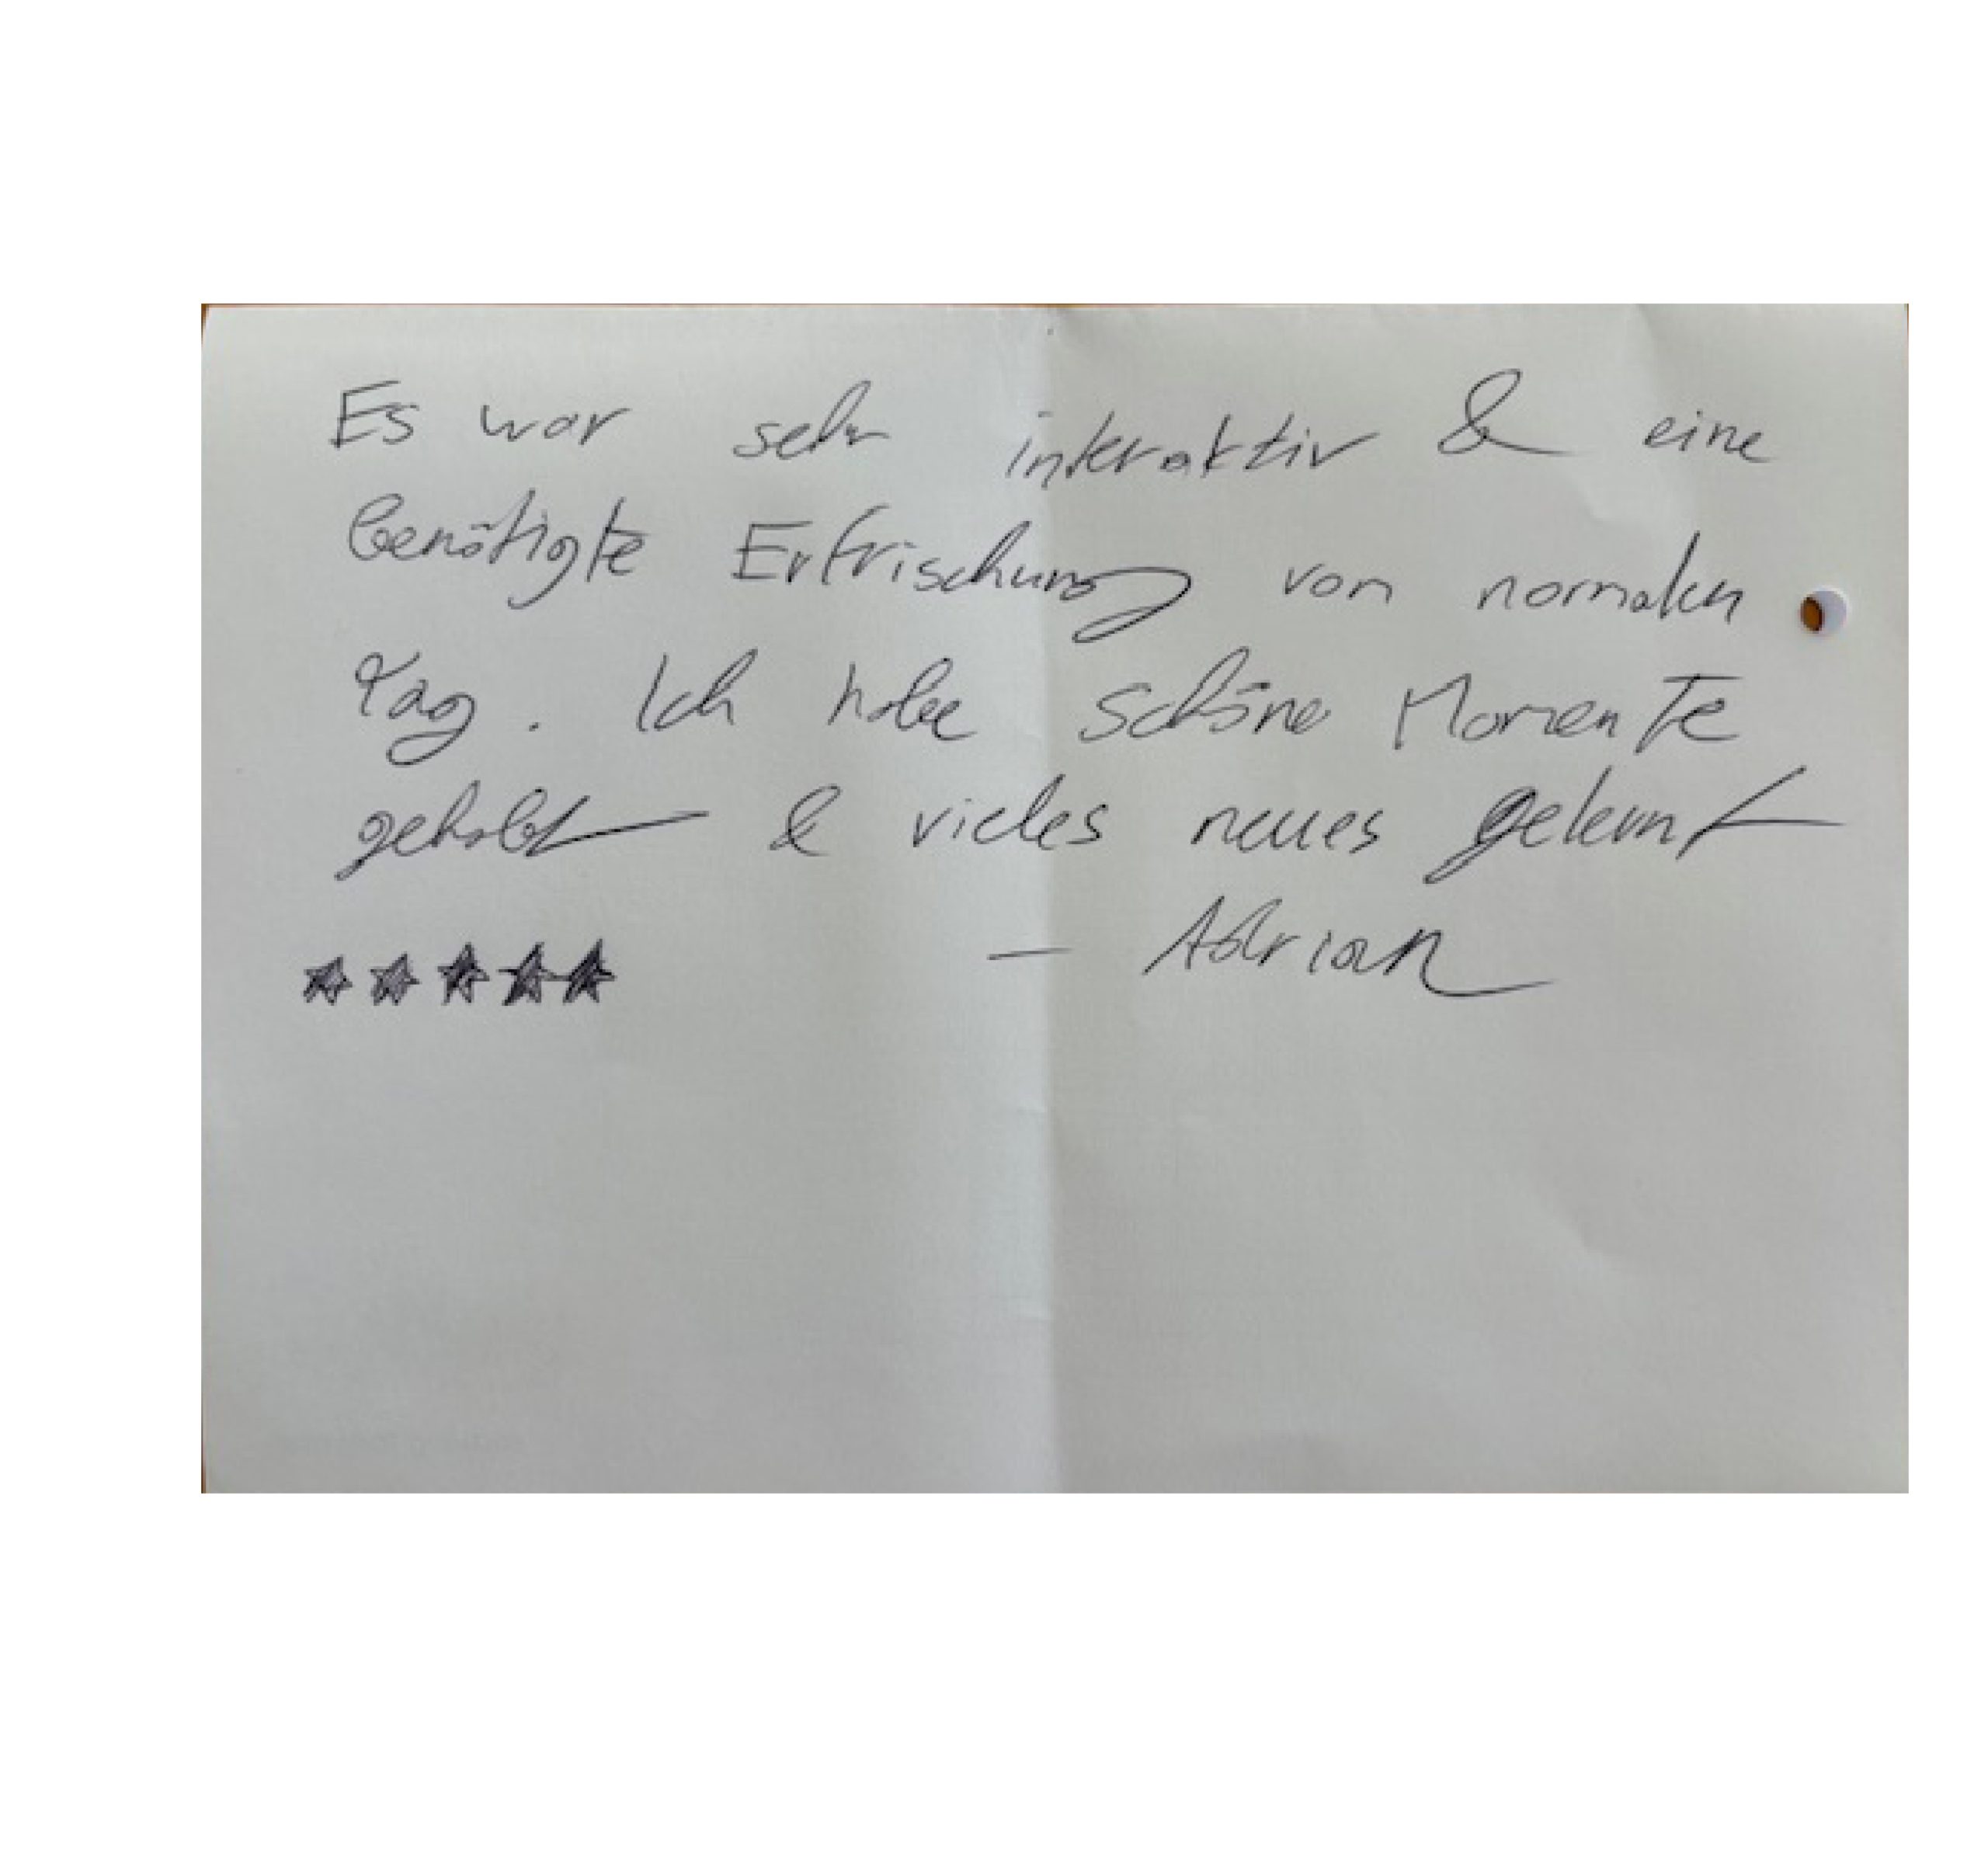 Es war sehr interaktiv & eine
benötigte Erfrischung von normalen
Tag. Ich habe schöne Momente
gehabt & vieles neues gelernt
★★★★★ – Adrian